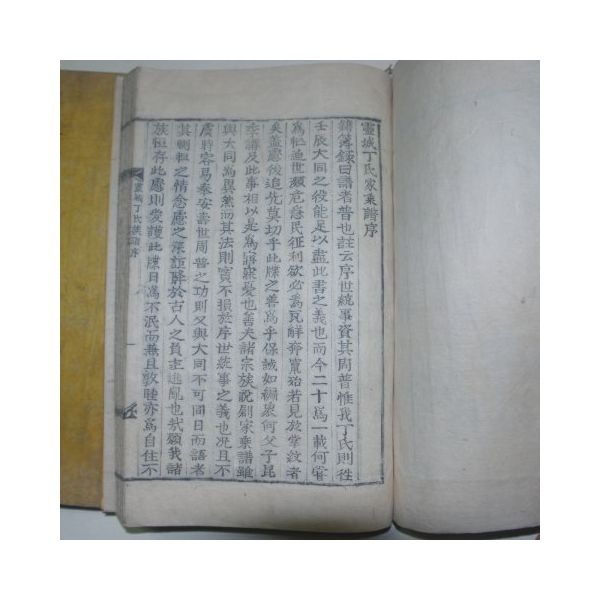 靈城丁氏家乘譜序
簿錄曰譜者普也註云序世統事資其周普惟我丁氏則徃
壬辰大同之役能足以盡此書之義也而今二十爲一載何
爲世瀕危急民征利欲必爲瓦解若見於掌紋者
矣盖慮後追先莫切乎此牒之善爲乎保誠如編衆何父子昆
季譜及此事相以是爲寤寐憂也善夫諸宗族設刱家乘譜雖
與大同爲異然而其法則實不損於序世統事之義也况且不
廣將容易泰安壽世周普之功則又與大同不可同日而語者
之情愈慮之深詎降於古人之負逃亂也哉願我諸
族恒存此慮則愛護此牒日爲不泯而兼且敦睦亦爲自住不
靈城丁氏族譜序